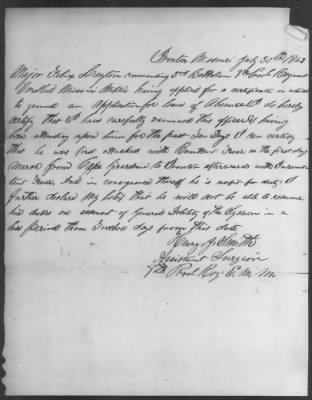 Ironton Missouri July 30th 1863
Major Felix Layton commanding 2nd Battalion 9th Provl Regiment
Enrolled Missouri Militia having applied for a certificate on which
to ground an Application for Leave of Absence I do hereby
certify that I have carefully examined this officer & having
been attending upon him for the first Ten Days I now certify
that he was first attacked with Fever on the first day
March from Cape Girardeau to Ironton afterwards with
Fever. And in consequence thereof he is unfit for duty. I
further declare my belief that he will not be able to resume
his duties on account of General Debility of the System in a
less period than Twelve days from this date
Henry J. Smith
Assistant Surgeon
9th Provl Reg. E. M. M.